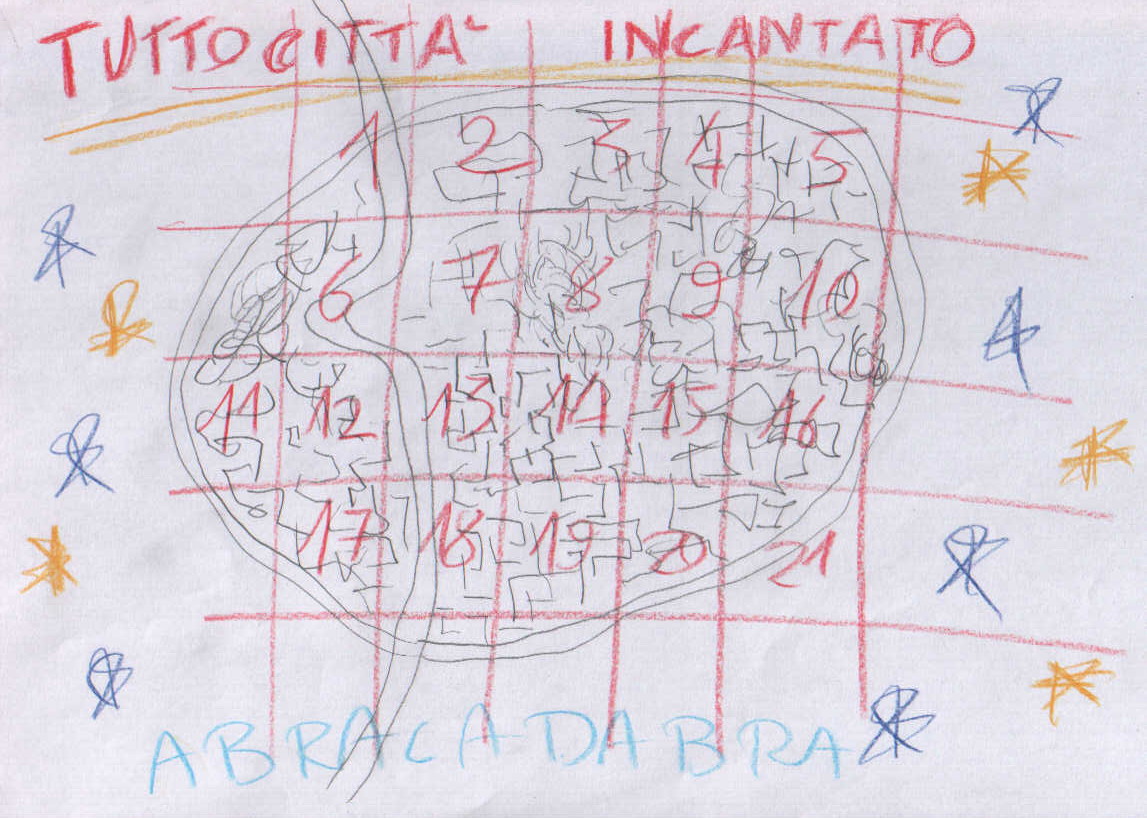 TUTTOCITTA' INCANTATO
1 2 3 4 5
6 7 8 9 10
11 12 13 14 15 16
17 18 19 20 21
ABRACADABRA